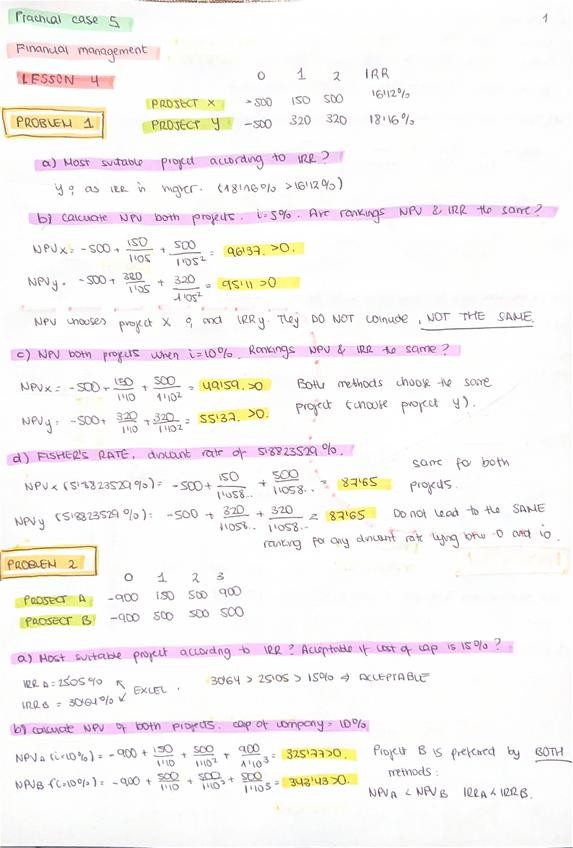 Practical case 5
1
Financial management
LESSON 4
0 1 2 IRR
PROJECT X -500 150 500 16'12%
PROBLEM 1
PROJECT Y -500 320 320 18'16%
a) Most suitable project according to IRR?
Y, as IRR is higher. (18'16% > 16'12%)
b) Calculate NPV both projects. i=5%. Are rankings NPV & IRR the same?
NPVx = -500 + 150/1'05 + 500/1'05² = 96'37. >0.
NPVy = -500 + 320/1'05 + 320/1'05² = 95'11 >0
NPV chooses project X, and IRR y. They DO NOT coincide, NOT THE SAME.
c) NPV both projects when i=10%. Rankings NPV & IRR the same?
NPVx = -500 + 150/1'10 + 500/1'10² = 49'59. >0
Both methods choose the same
NPVy = -500 + 320/1'10 + 320/1'10² = 55'37. >0.
project (choose project Y).
d) FISHER'S RATE, discount rate of 5'8823529%.
NPVx (5'8823529%) = -500 + 150/1'058.. + 500/1'058... = 87'65
same for both
projects.
NPVy (5'8823529%) = -500 + 320/1'058.. + 320/1'058... = 87'65
Do not lead to the SAME
ranking for any discount rate lying btw 0 and 10.
PROBLEM 2
0 1 2 3
PROJECT A -900 150 500 900
PROJECT B -900 500 500 500
a) Most suitable project according to IRR? Acceptable if cost of cap is 15%?
IRR A = 25'05%
EXCEL.
30'64 > 25'05 > 15% ⇒ ACCEPTABLE
IRR B = 30'64%
b) Calculate NPV of both projects. cap of company = 10%
NPVA (i=10%) = -900 + 150/1'10 + 500/1'10² + 900/1'10³ = 325'77 >0.
Project B is preferred by BOTH
NPVB (i=10%) = -900 + 500/1'10 + 500/1'10² + 500/1'10³ = 343'43 >0.
methods:
NPVA < NPVB IRRA < IRRB.